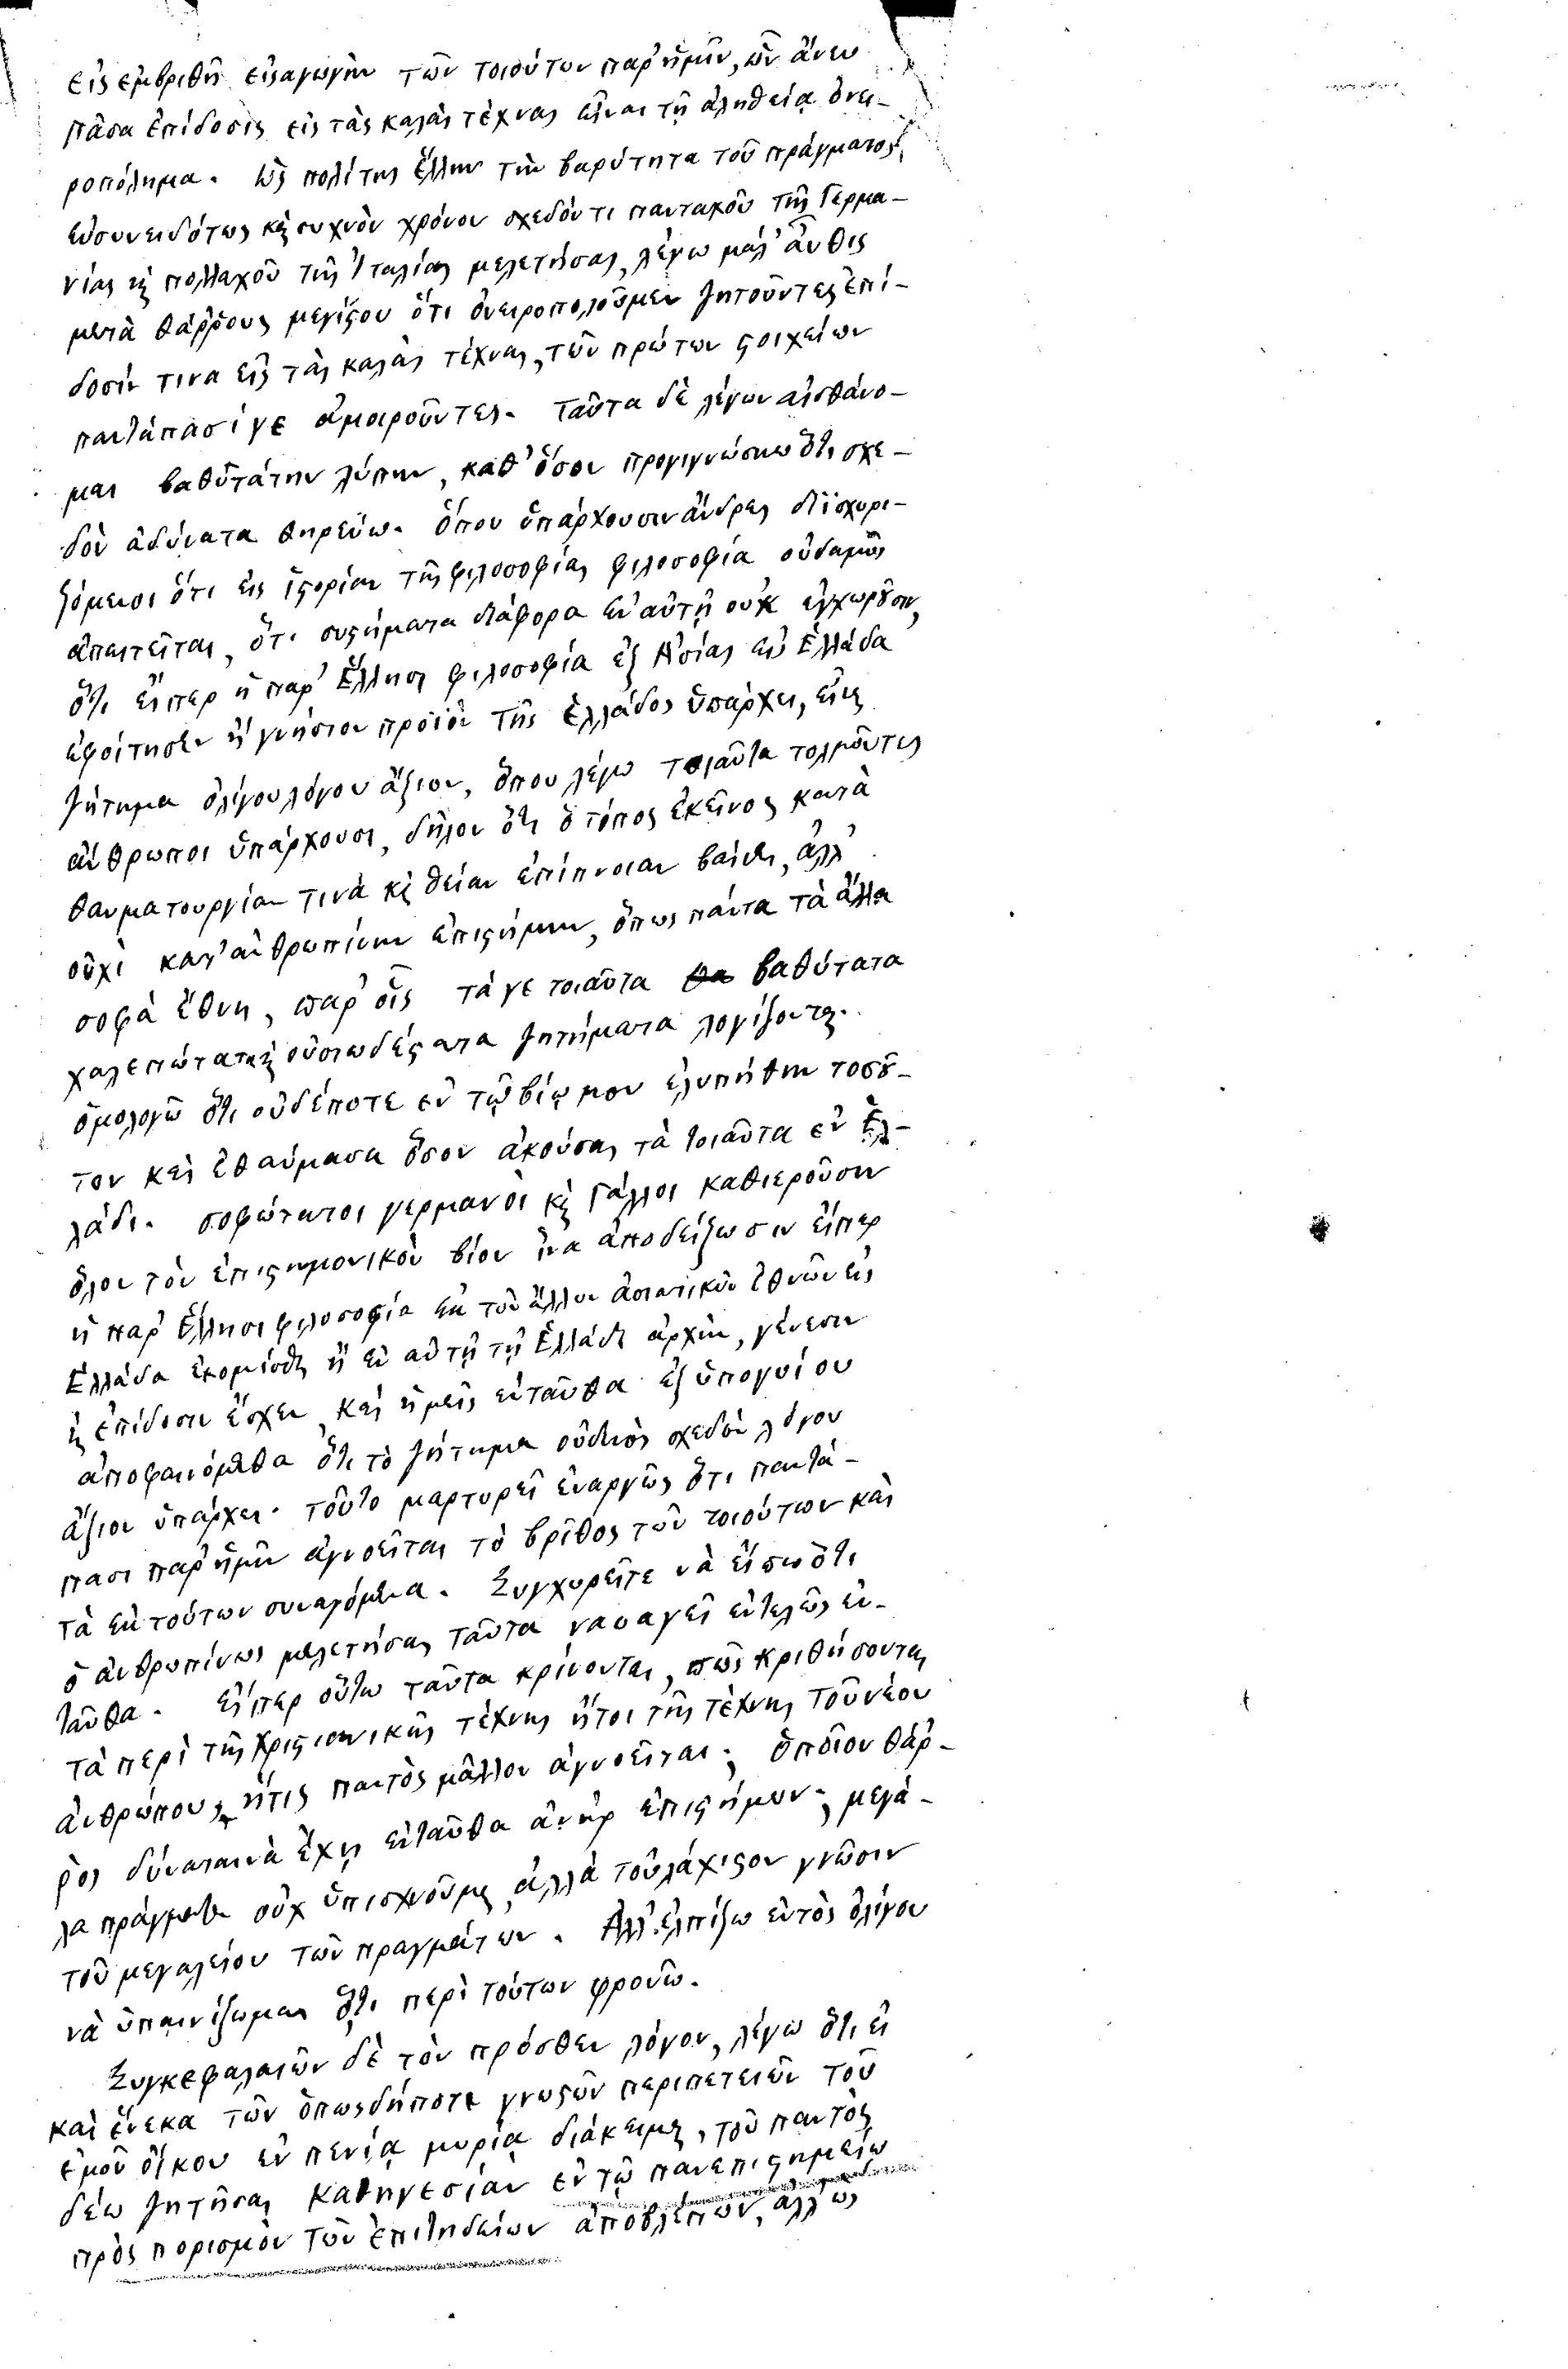 εἰς ἐμβριθῆ εἰσαγωγὴν τῶν τοιούτων παρ' ἡμῖν, ὧν ἄνευ
πᾶσα ἐπίδοσις εἰς τὰς καλὰς τέχνας εἶναι τῇ ἀληθείᾳ ὀνει-
ροπόλημα. Ὡς πολίτης Ἕλλην τὴν βαρύτητα τοῦ πράγματος
εὐσυνειδότως κ̀ συχνὸν χρόνον σχεδόν τι πανταχοῦ τῆς Γερμα-
νίας κ̀ πολλαχοῦ τῆς Ἰταλίας μελετήσας, λέγω μάλ' αὖθις
μετὰ θάῤῥους μεγίϛου ὅτι ὀνειροπολοῦμεν ζητοῦντες ἐπί-
δοσίν τινα εἰς τὰς καλὰς τέχνας, τῶν πρώτων ϛοιχείων
παντάπασί γε ἀμοιροῦντες. Ταῦτα δὲ λέγων αἰσθάνο-
μαι βαθυτάτην λύπην, καθ' ὅσον προγιγνώσκω ὅτι σχε-
δὸν ἀδύνατα θηρεύω. Ὅπου ὑπάρχουσιν ἄνδρες διϊσχυρι-
ζόμενοι ὅτι εἰς ἱϛορίαν τῆς φιλοσοφίας φιλοσοφία οὐδαμῶς
ἀπαιτεῖται, ὅτι συϛήματα διάφορα ἐν αὐτῇ οὐκ ἐγχωροῦσιν,
ὅτι εἴπερ ἡ παρ' Ἕλλησι φιλοσοφία ἐξ Ἀσίας εἰς Ἑλλάδα
ἐφοίτησεν ἢ γνήσιον προϊὸν τῆς Ἑλλάδος ὑπάρχει, εἶναι
ζήτημα ὀλίγου λόγου ἄξιον, ὅπου λέγω τοιαῦτα τολμῶντες
ἄνθρωποι ὑπάρχουσι, δῆλον ὅτι ὁ τόπος ἐκεῖνος κατὰ
θαυματουργίαν τινὰ κ̀ θείαν ἐπίπνοιαν βαίνει, ἀλλ'
οὐχὶ κατ' ἀνθρωπίνην ἐπιϛήμην, ὅπως πάντα τὰ ἄλλα
σοφὰ ἔθνη, παρ' οἷς τά γε τοιαῦτα βαθύτατα
χαλεπώτατα κ̀ οὐσιωδέϛατα ζητήματα λογίζονται.
ὁμολογῶ ὅτι οὐδέποτε ἐν τῷ βίῳ μου ἐλυπήθην τοσοῦ-
τον καὶ ἐθαύμασα ὅσον ἀκούσας τὰ τοιαῦτα ἐν Ἑλ-
λάδι. σοφώτατοι γερμανοὶ κ̀ Γάλλοι καθιεροῦσιν
ὅλον τὸν ἐπιϛημονικὸν βίον ἵνα ἀποδείξωσιν εἴπερ
ἡ παρ' Ἕλλησι φιλοσοφία ἐκ τῶν ἄλλων ἀσιατικῶν ἐθνῶν εἰς
Ἑλλάδα ἐκομίσθη ἢ ἐν αὐτῇ τῇ Ἑλλάδι ἀρχὴν, γένεσιν
κ̀ ἐπίδοσιν ἔσχεν, καὶ ἡμεῖς ἐνταῦθα ἐξ ὑπογυίου
ἀποφαινόμεθα ὅτι τὸ ζήτημα οὐδενὸς σχεδὸν λόγου
ἄξιον ὑπάρχει. τοῦτο μαρτυρεῖ ἐναργῶς ὅτι παντά-
πασι παρ' ἡμῖν ἀγνοεῖται τὸ βρῖθος τῶν τοιούτων καὶ
τὰ ἐκ τούτων συναγόμενα. Συγχωρεῖτε νὰ εἴπω ὅτι
ὁ ἀνθρωπίνως μελετήσας ταῦτα ναυαγεῖ ἐντελῶς ἐν-
ταῦθα. Εἴπερ οὕτω ταῦτα κρίνονται, πῶς κριθήσονται
τὰ περὶ τῆς χριϛιανικῆς τέχνης ἤτοι τῆς τέχνης τοῦ νέου
ἀνθρώπου, ἥτις παντὸς μᾶλλον ἀγνοεῖται; ὁποῖον θάρ-
ρος δύναται νὰ ἔχῃ ἐνταῦθα ἀνὴρ ἐπιϛήμων; μεγά-
λα πράγματα οὐχ ὑπισχνοῦμαι, ἀλλὰ τοὐλάχιϛον γνῶσιν
τοῦ μεγαλείου τῶν πραγμάτων. Ἀλλ' ἐλπίζω ἐντὸς ὀλίγου
νὰ ὑπαινίξωμαι ὅ,τι περὶ τούτων φρονῶ.
Συγκεφαλαιῶν δὲ τὸν πρόσθεν λόγον, λέγω ὅτι εἰ
καὶ ἕνεκα τῶν ὁπωςδήποτε γνωϛῶν περιπετειῶν τοῦ
ἐμοῦ οἴκου ἐν πενίᾳ μυρίᾳ διάκειμαι, τοῦ παντὸς
δέω ζητῆσαι καθηγεσίαν ἐν τῷ πανεπιϛημείῳ
πρὸς πορισμὸν τῶν ἐπιτηδείων ἀποβλέπων, ἀλλ' ὡς